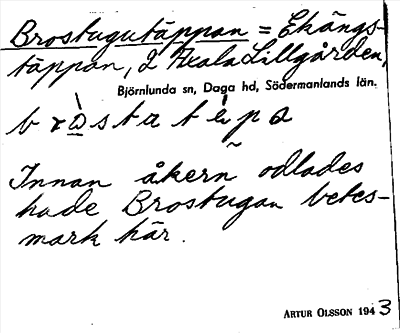 Brostugutäppan = Ekängs-
täppan, 2 Axala Lillgården,
Björnlunda sn, Daga hd, Södermanlands län.
Innan åkern odlades
hade Brostugan betes-
mark här.
ARTUR OLSSON 1943